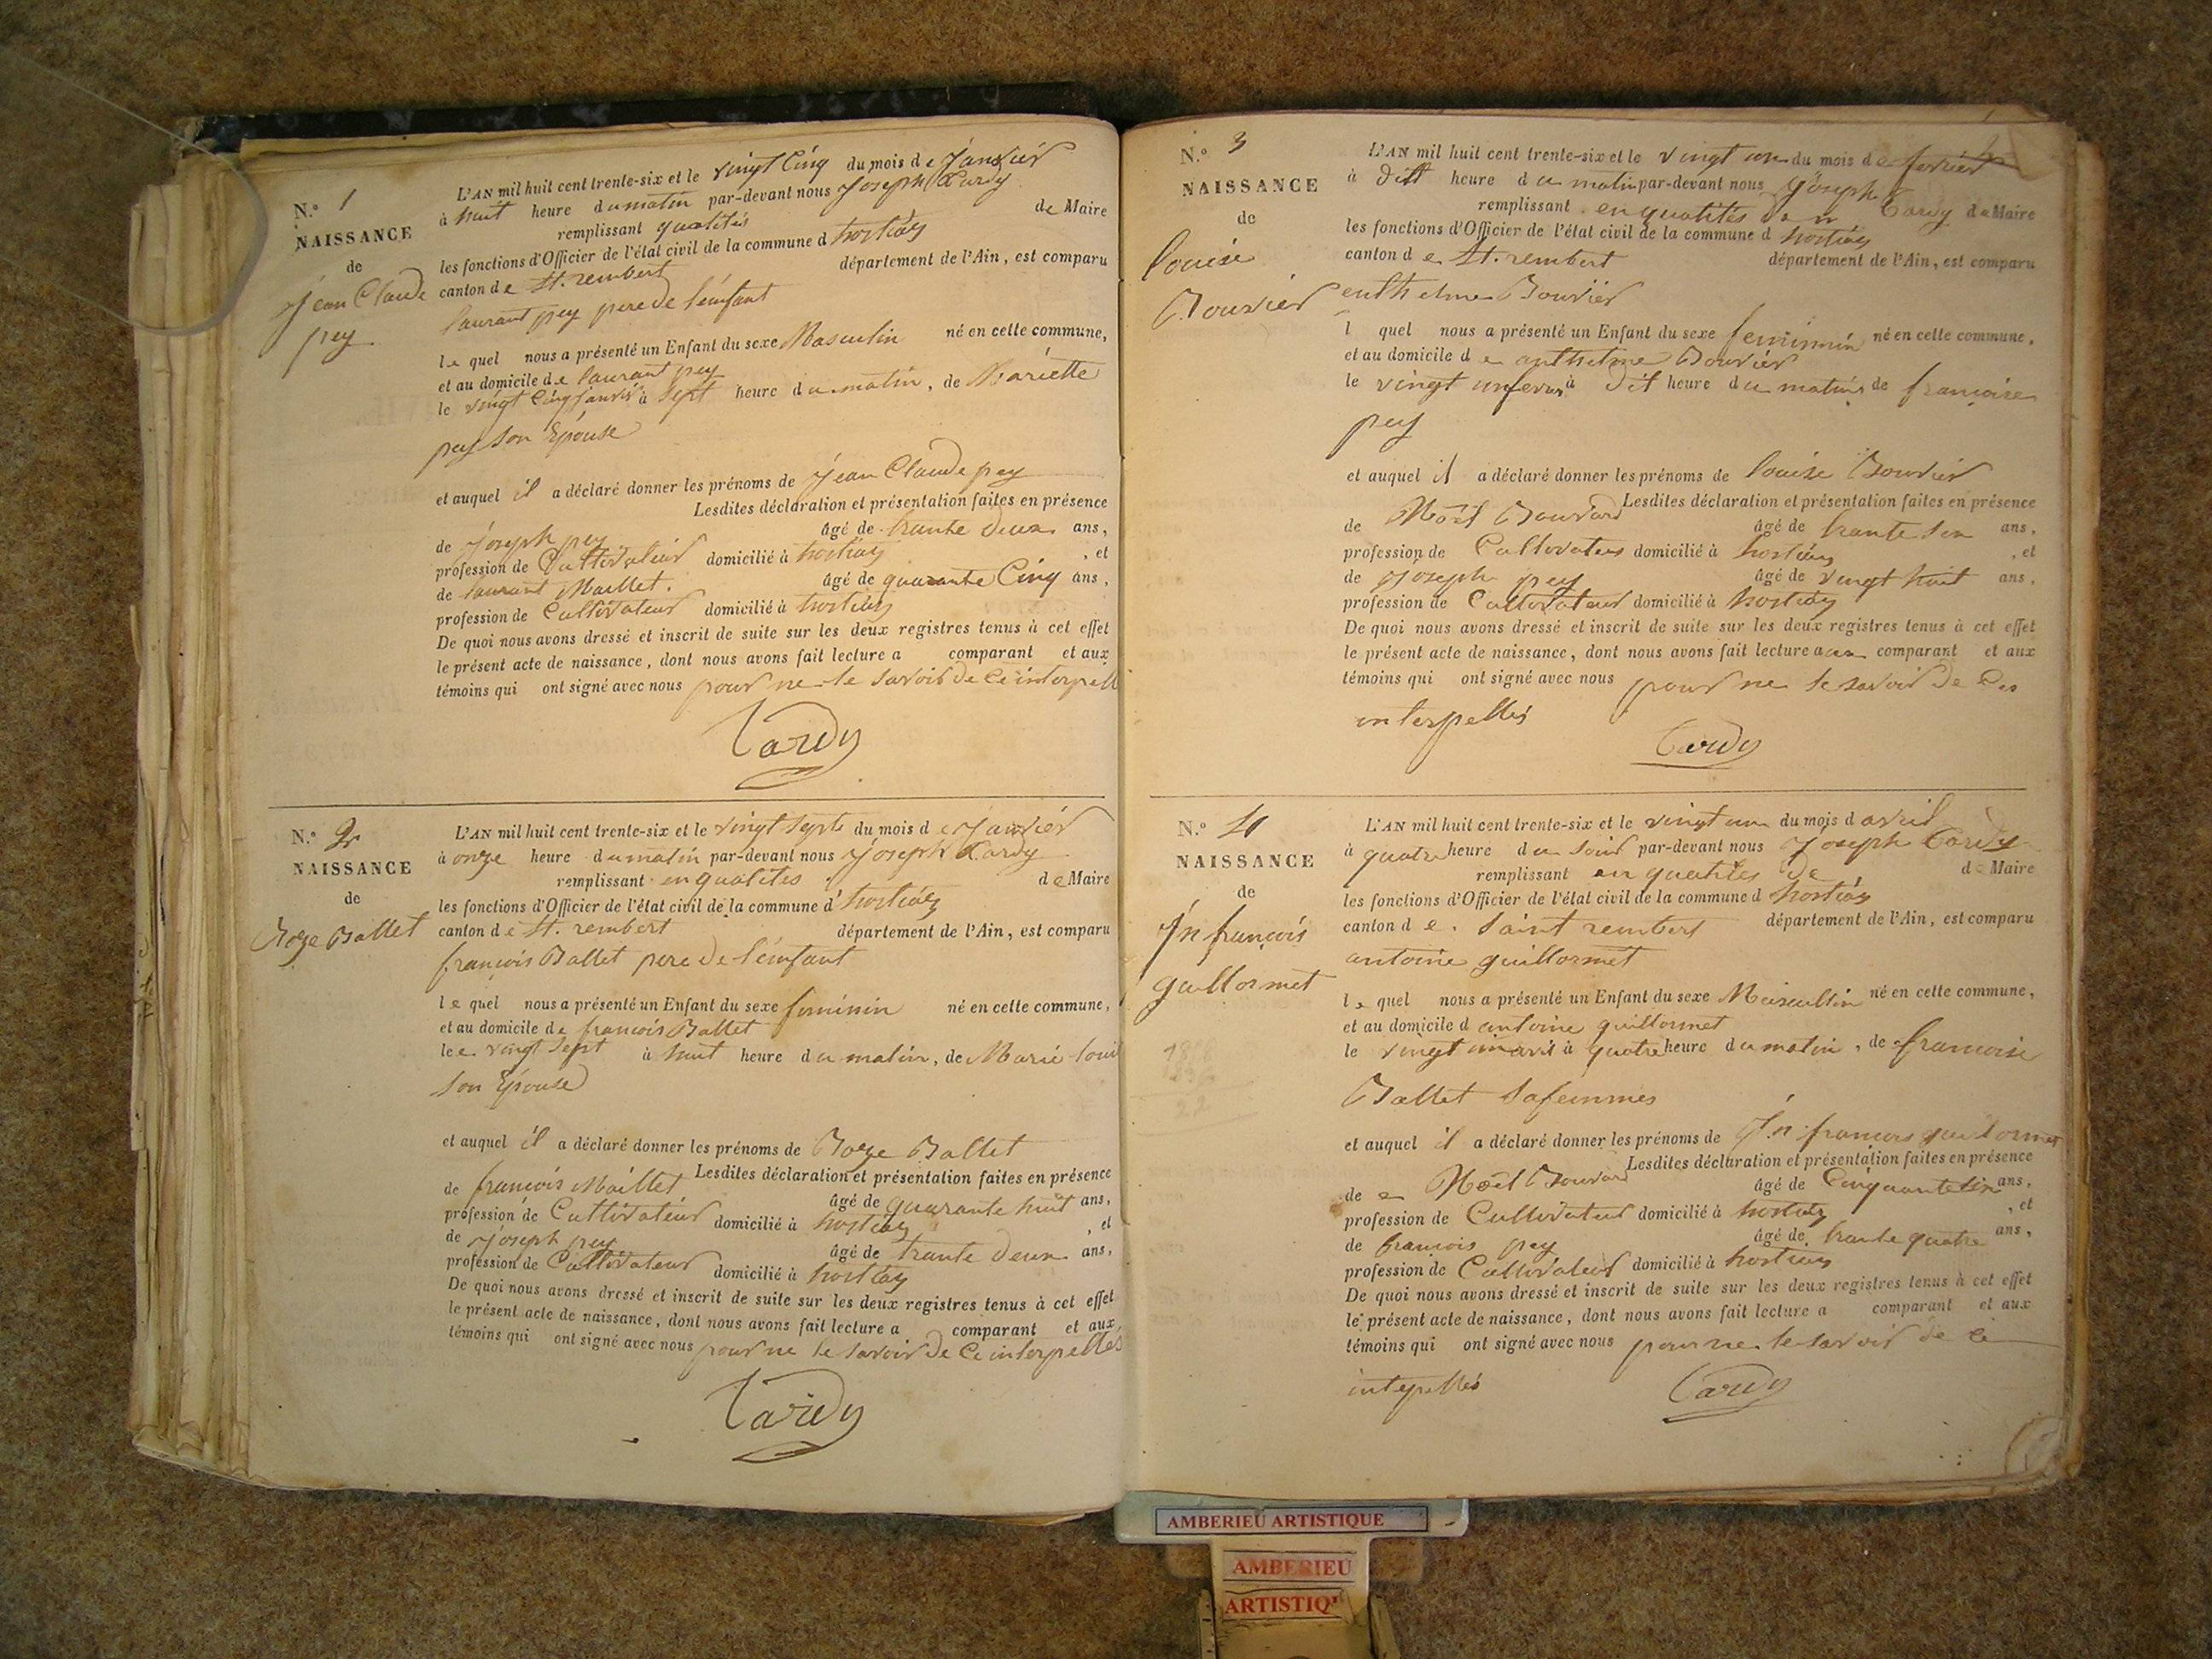 N.° 1
NAISSANCE
de
Jean Claude
pey
L'AN mil huit cent trente-six et le vingt Cinq du mois de Janvier
à huit heure du matin par-devant nous Joseph Tardy
remplissant qualités de Maire
les fonctions d'Officier de l'état civil de la commune d hostiaz
canton de St. rembert département de l'Ain, est comparu
laurant pey pere de l'enfant
le quel nous a présenté un Enfant du sexe Masculin né en cette commune,
et au domicile de laurant pey
le vingt Cinq janvié à sept heure du matin, de Mariette
pey son Épouse
et auquel il a déclaré donner les prénoms de Jean Claude pey
Lesdites déclaration et présentation faites en présence
de Joseph pey âgé de trante deux ans,
profession de Cultivateur domicilié à hostiaz , et
de laurant Maillet. âgé de quarante Cinq ans,
profession de Cultivateur domicilié à hostiaz
De quoi nous avons dressé et inscrit de suite sur les deux registres tenus à cet effet
le présent acte de naissance, dont nous avons fait lecture a comparant et aux
témoins qui ont signé avec nous pour ne le savoir de ce interpell
Tardy
N.° 2
NAISSANCE
de
Roze Ballet
L'AN mil huit cent trente-six et le vingt septe du mois de Janvier
à onze heure du matin par-devant nous Joseph Tardy
remplissant en qualites de Maire
les fonctions d'Officier de l'état civil de la commune d hostiaz
canton de St. rembert département de l'Ain, est comparu
françois Ballet pere de l'enfant
le quel nous a présenté un Enfant du sexe feminin né en cette commune,
et au domicile de francois Ballet
le vingt sept à huit heure du matin, de Marie loui
son Épouse
et auquel il a déclaré donner les prénoms de Roze Ballet
Lesdites déclaration et présentation faites en présence
de francois Maillet âgé de quarante huit ans,
profession de Cultivateur domicilié à hostiaz , et
de Joseph pey âgé de trante deux ans,
profession de Cultivateur domicilié à hostiaz
De quoi nous avons dressé et inscrit de suite sur les deux registres tenus à cet effet
le présent acte de naissance, dont nous avons fait lecture a comparant et aux
témoins qui ont signé avec nous pour ne le savoir de ce interpellés
Tardy
N.° 3
NAISSANCE
de
louise
Bouvier
L'AN mil huit cent trente-six et le vingt un du mois de fevrier
à ditt heure du matin par-devant nous Joseph
remplissant en qualités Tardy de Maire
les fonctions d'Officier de l'état civil de la commune d hostiaz
canton de St. rembert département de l'Ain, est comparu
enthelme Bouvier
l quel nous a présenté un Enfant du sexe feminin né en cette commune,
et au domicile de anthelme Bouvier
le vingt un à dit heure du matin de francoise
pey
et auquel il a déclaré donner les prénoms de louise Bouvier
Lesdites déclaration et présentation faites en présence
de Noël Bouvard âgé de trante ans,
profession de Cultivateur domicilié à hostiaz , et
de Joseph pey âgé de vingt huit ans,
profession de Cultivateur domicilié à hostiaz
De quoi nous avons dressé et inscrit de suite sur les deux registres tenus à cet effet
le présent acte de naissance, dont nous avons fait lecture a comparant et aux
témoins qui ont signé avec nous pour ne le savoir de
interpellés
Tardy
N.°
NAISSANCE
de
Jn françois
guillormet
L'AN mil huit cent trente-six et le vingt un du mois d avril
à quatre heure du soir par-devant nous Joseph Tardy
remplissant en qualités de de Maire
les fonctions d'Officier de l'état civil de la commune d hostiaz
canton de. Saint rembert département de l'Ain, est comparu
antoine guillormet
le quel nous a présenté un Enfant du sexe Masculin né en cette commune,
et au domicile d antoine guillormet
le vingt un avril à quatre heure du matin, de francoise
Ballet sa femmes
et auquel il a déclaré donner les prénoms de Jn francois guillormet
Lesdites déclaration et présentation faites en présence
de Noël Bouvard âgé de Cinquante ans,
profession de Cultivateur domicilié à hostiaz , et
de francois pey âgé de trante quatre ans,
profession de Cultivateur domicilié à hostiaz
De quoi nous avons dressé et inscrit de suite sur les deux registres tenus à cet effet
le présent acte de naissance, dont nous avons fait lecture a comparant et aux
témoins qui ont signé avec nous pour ne le savoir de ce
Tardy
AMBERIEU ARTISTIQUE
AMBERIEU
ARTISTIQ'